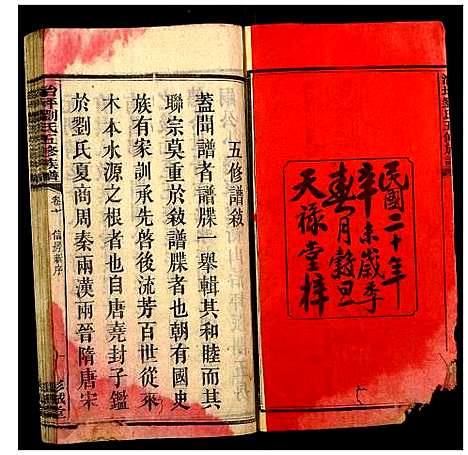 民國二十年
辛未歲季
春月穀旦
天祿堂梓
五修譜敘
蓋聞譜者譜牒一舉輯其和睦而其
聯宗莫重於敘譜牒者也朝有國史
族有家訓承先啓後流芳百世從來
木本水源之根者也自唐堯封子鑑
於劉氏夏商周秦兩漢兩晉隋唐宋
劉氏五修族譜
卷十
彭城堂